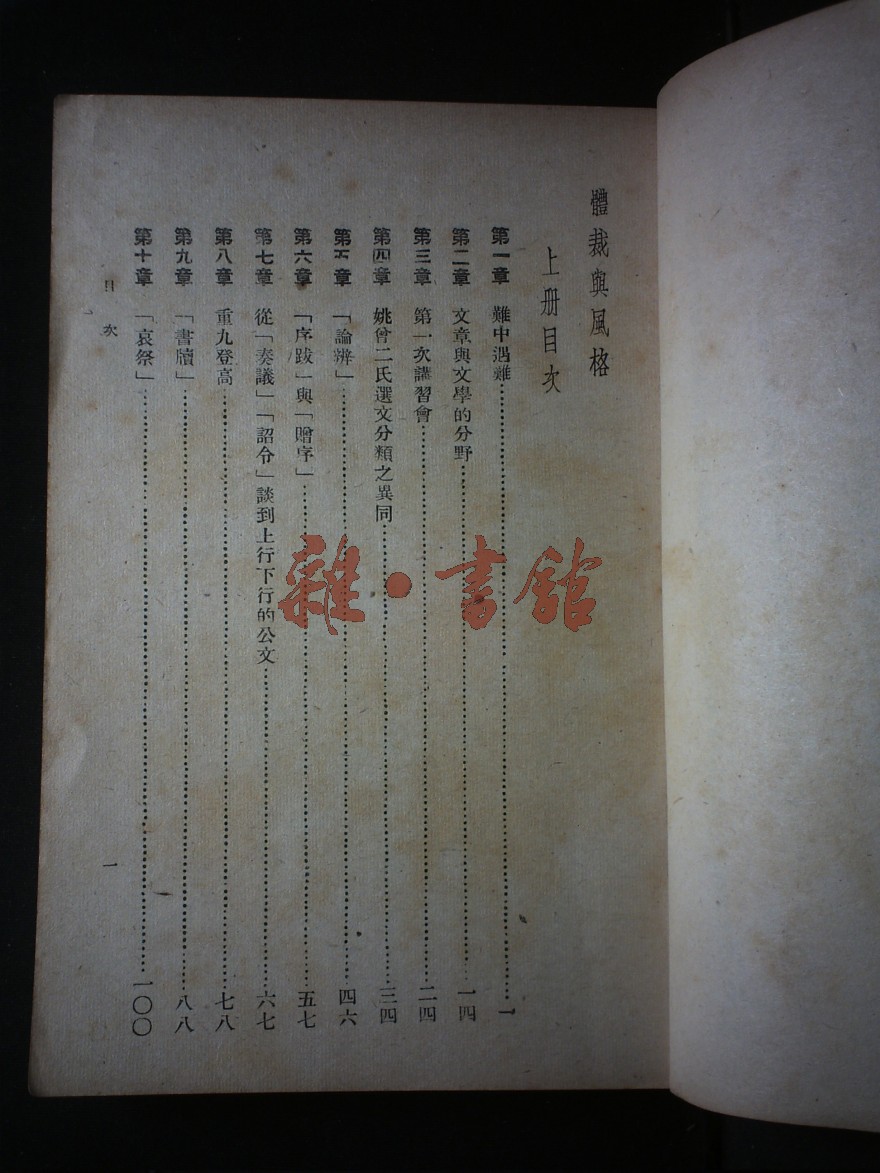 體裁與風格
上册目次
第一章 難中遇難…………一
第二章 文章與文學的分野…………一四
第三章 第一次講習會…………二四
第四章 姚曾二氏選文分類之異同…………三四
第五章 「論辨」…………四六
第六章 「序跋」與「贈序」…………五七
第七章 從「奏議」「詔令」談到上行下行的公文…………六七
第八章 重九登高…………七八
第九章 「書牘」…………八八
第十章 「哀祭」…………一〇〇
目次 一
雜·書館